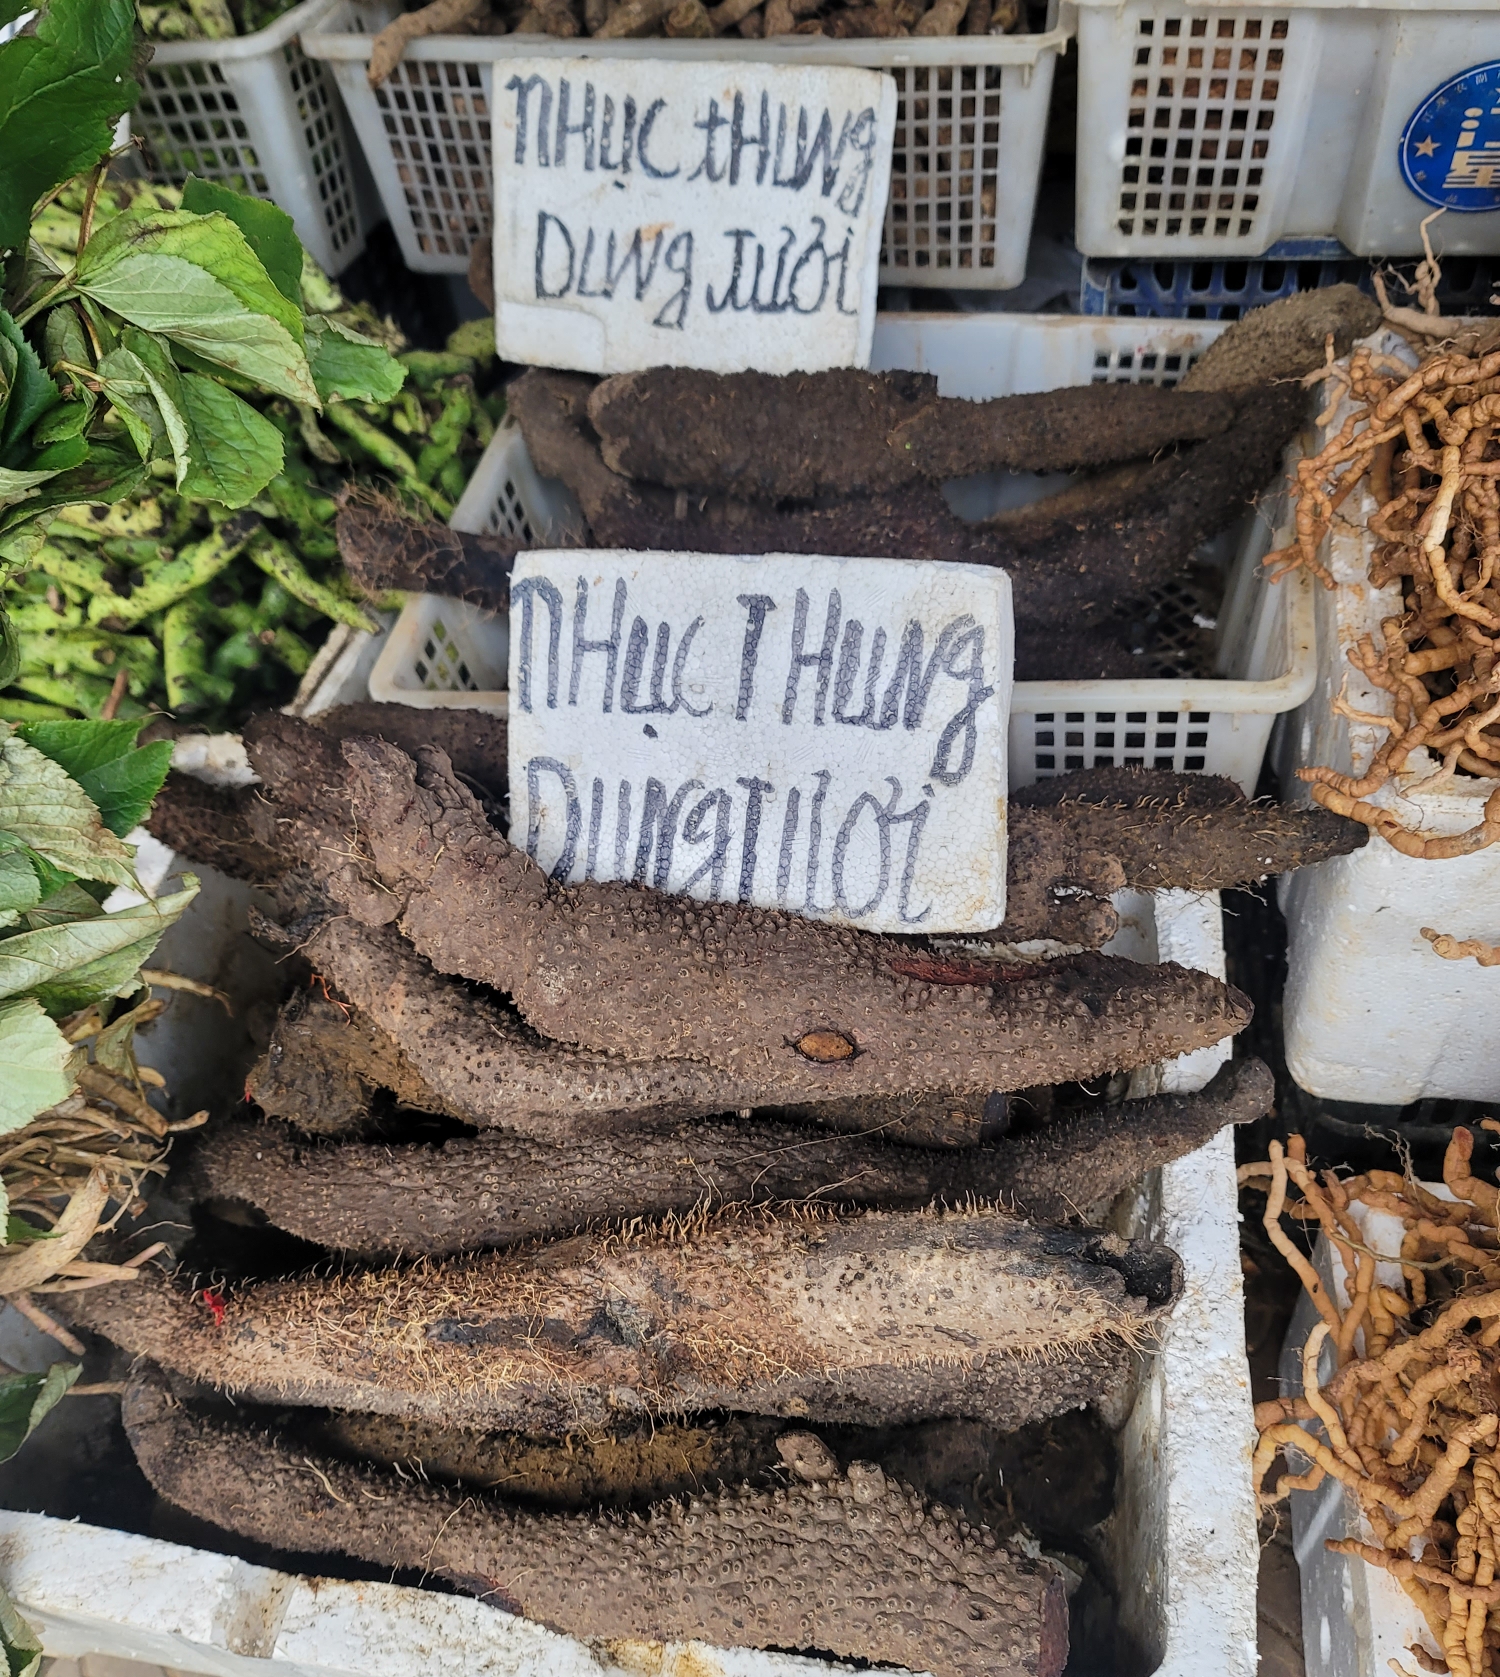 NHỤC THUNG
DUNG TƯƠI
NHỤC THUNG
DUNG TƯƠI